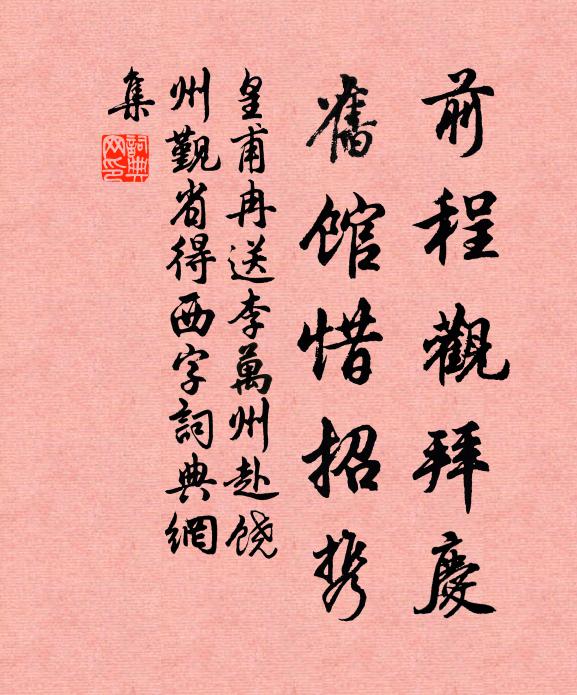 前程觀拜慶
舊馆惜招携
皇甫冉送李萬州赴饶
州覲省得西字詞典網
集
詞典
网印